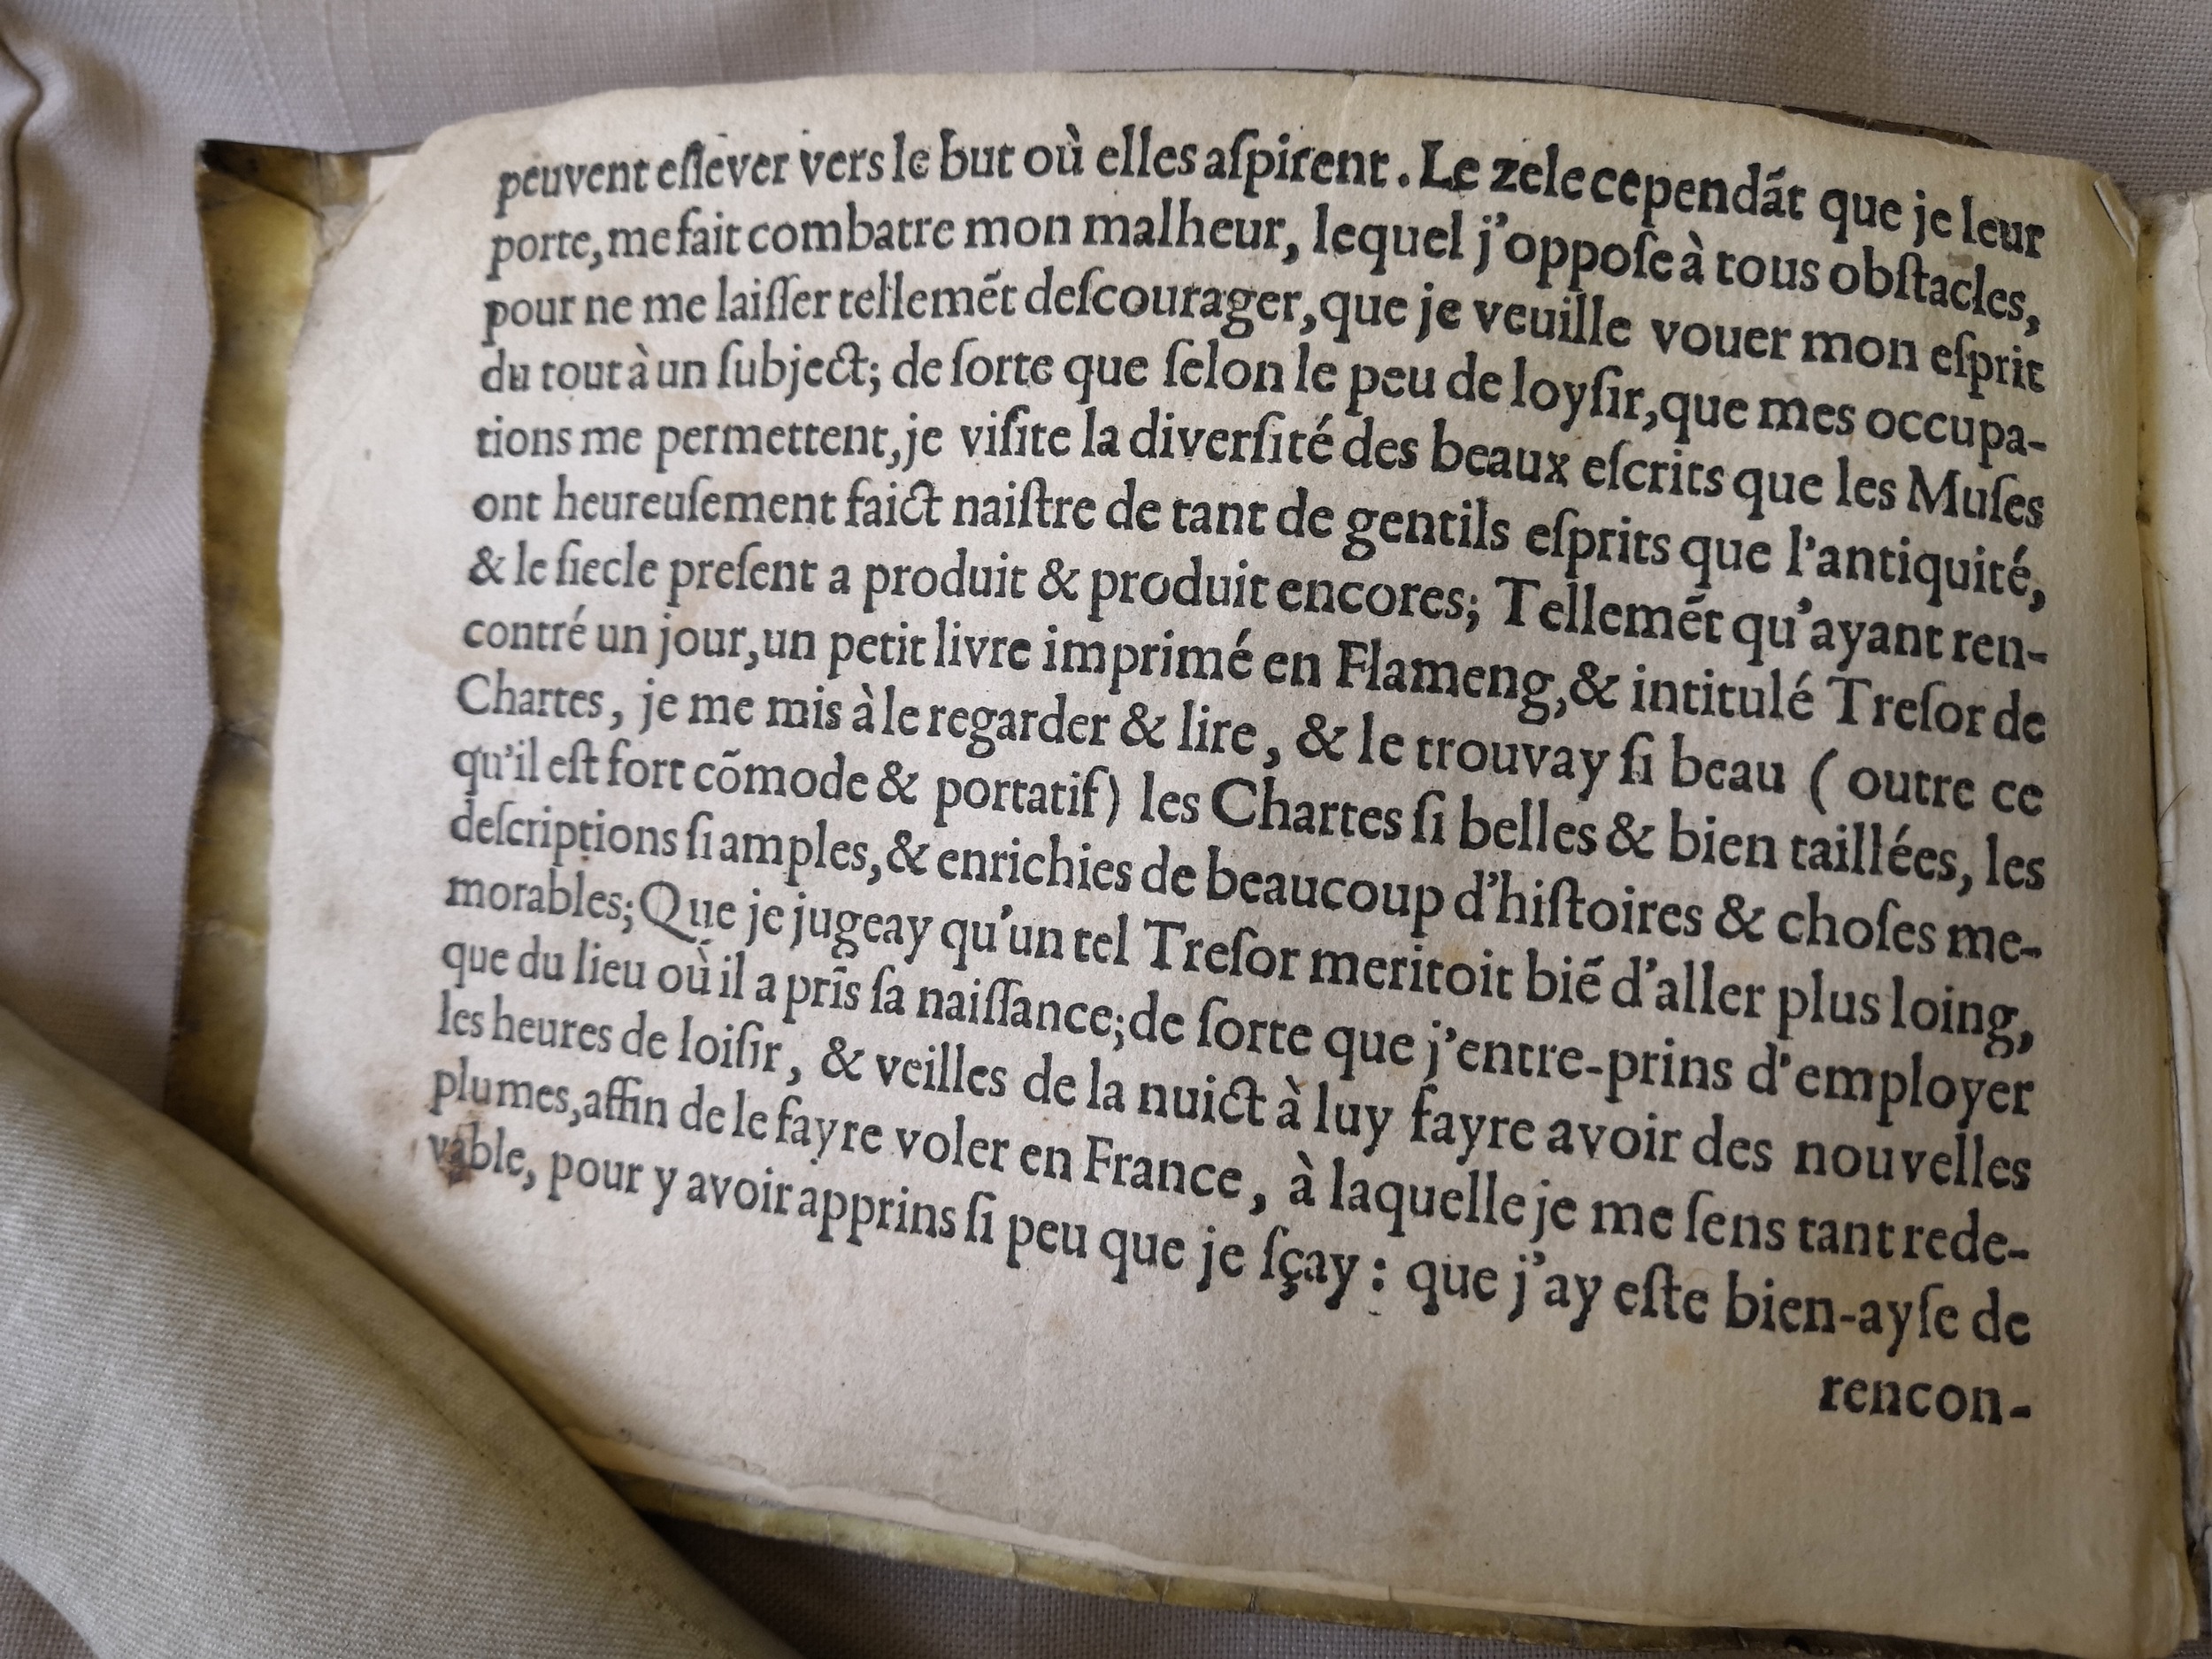 peuvent eſlever vers le but où elles aſpirent. Le zele cependãt que je leur
porte, me fait combatre mon malheur, lequel j'oppoſe à tous obſtacles,
pour ne me laiſſer tellemẽt deſcourager, que je veuille vouer mon eſprit
du tout à un ſubject; de ſorte que ſelon le peu de loyſir, que mes occupa-
tions me permettent, je viſite la diverſité des beaux eſcrits que les Muſes
ont heureuſement faict naiſtre de tant de gentils eſprits que l'antiquité,
& le ſiecle preſent a produit & produit encores; Tellemẽt qu'ayant ren-
contré un jour, un petit livre imprimé en Flameng, & intitulé Treſor de
Chartes, je me mis à le regarder & lire, & le trouvay ſi beau ( outre ce
qu'il eſt fort cõmode & portatif) les Chartes ſi belles & bien taillées, les
deſcriptions ſi amples, & enrichies de beaucoup d'hiſtoires & choſes me-
morables; Que je jugeay qu'un tel Treſor meritoit biẽ d'aller plus loing,
que du lieu où il a prĩs ſa naiſſance; de ſorte que j'entre-prins d'employer
les heures de loiſir, & veilles de la nuict à luy fayre avoir des nouvelles
plumes, affin de le fayre voler en France, à laquelle je me ſens tant rede-
vable, pour y avoir apprins ſi peu que je ſçay : que j'ay eſte bien-ayſe de
rencon-